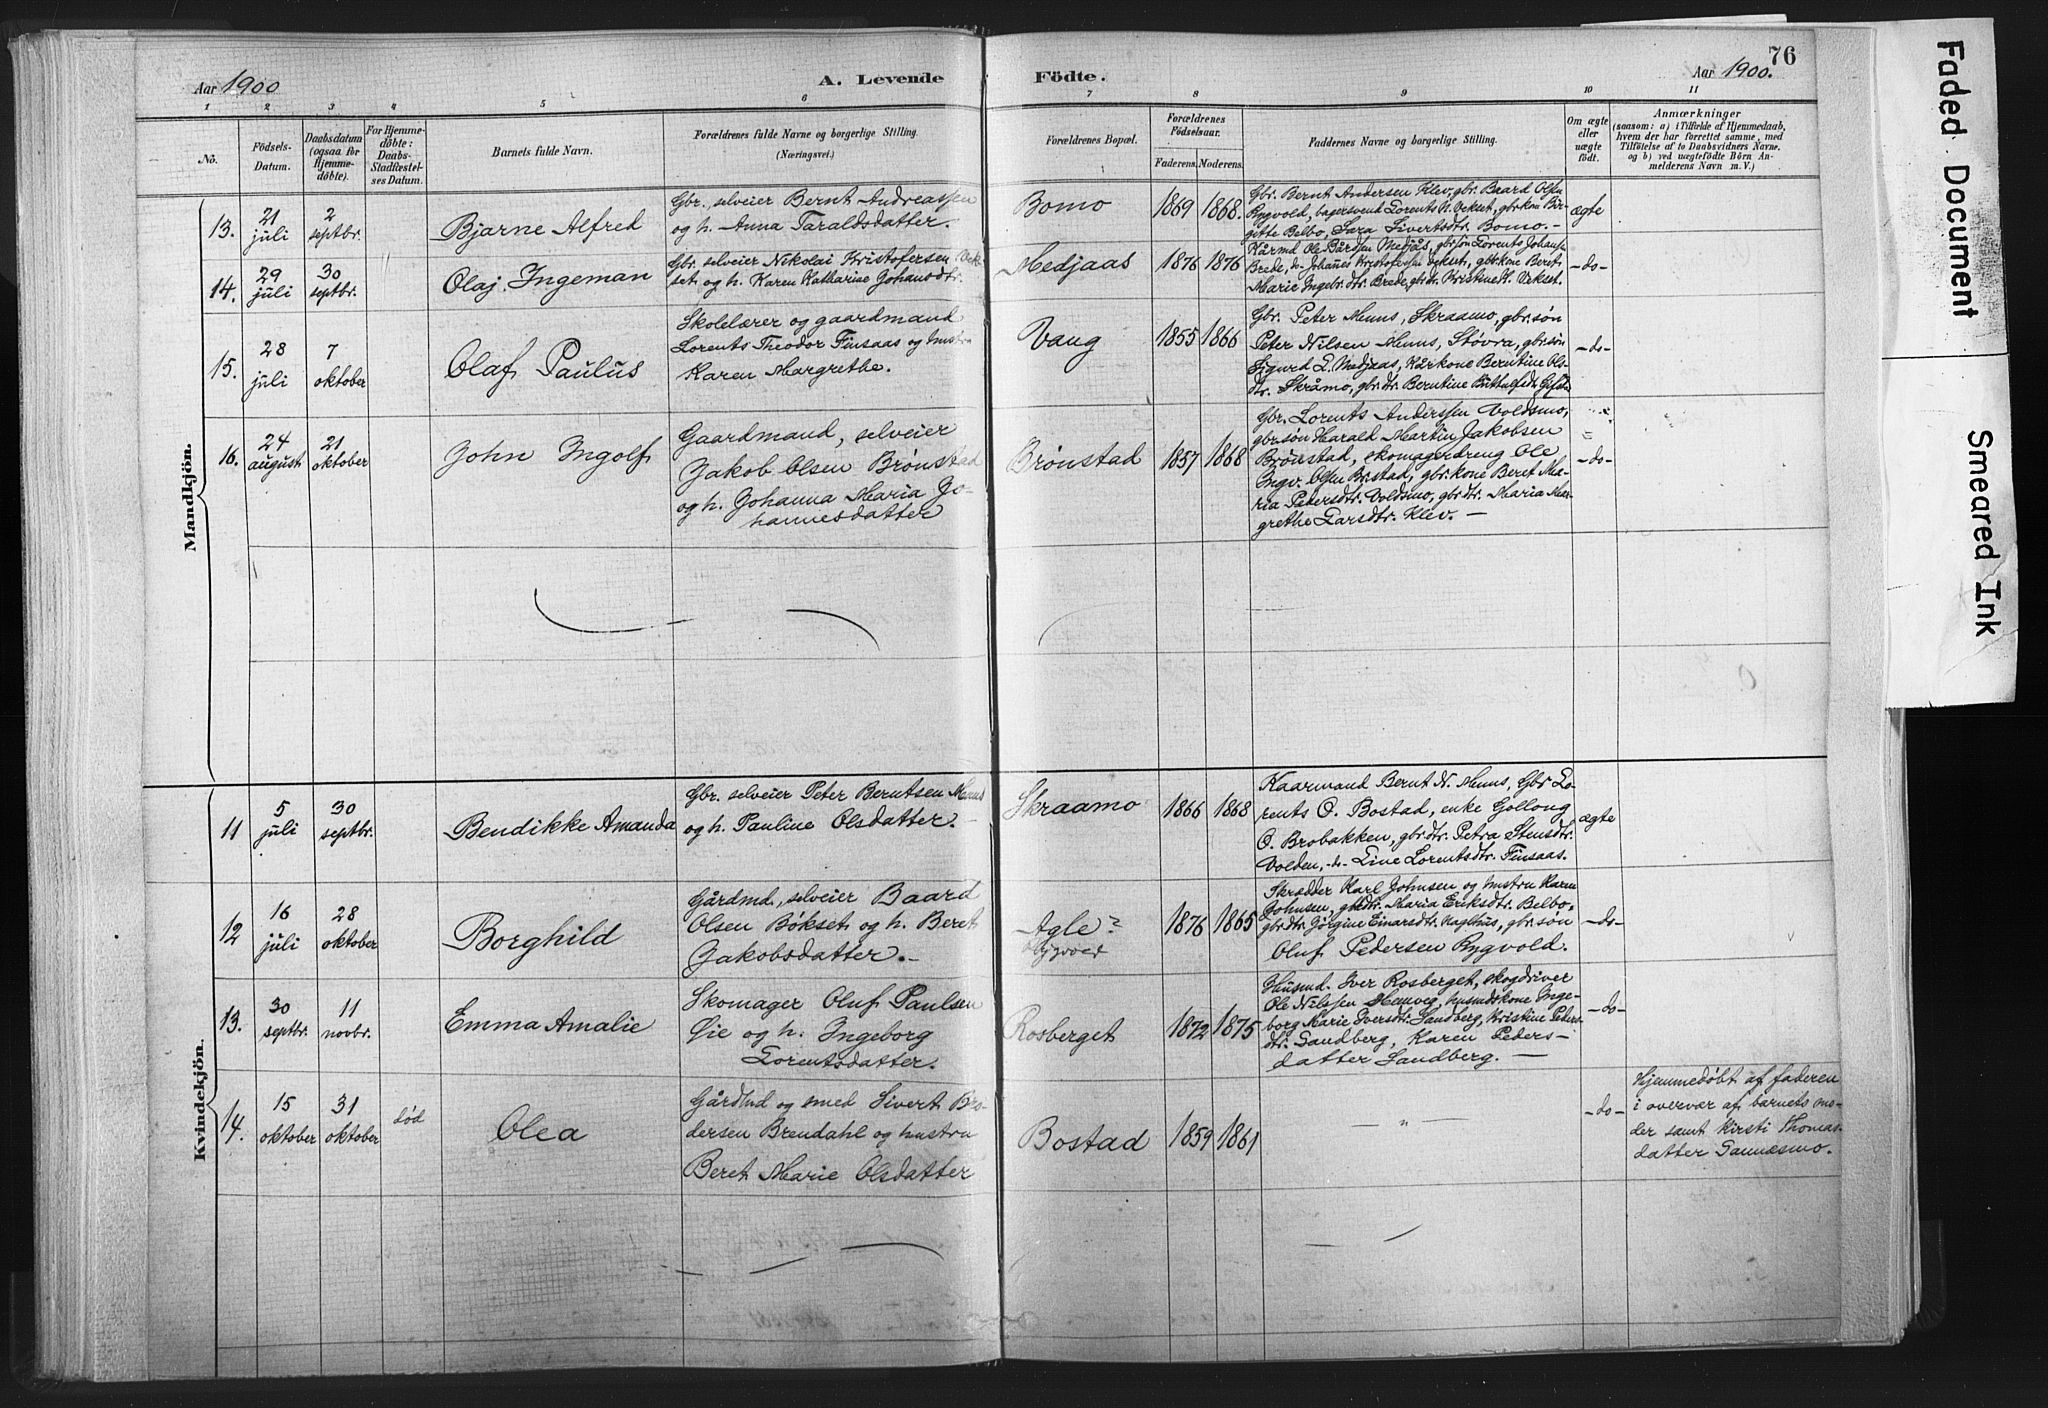 76
Aar 1900
A. Levende
Födte.
Aar 1900.
1 2 3 4 5 6 7 8 9 10 11
No.
Födsels-
Datum.
Daabsdatum
(ogsaa for
Hjemme-
döbte).
For Hjemme-
döbte:
Daabs-
Stadfæstel-
ses Datum.
Barnets fulde Navn.
Forældrenes fulde Navne og borgerlige Stilling.
(Næringsvei.)
Forældrenes Bopæl.
Forældrenes
Födselsaar.
Faderens.
Moderens.
Faddernes Navne og borgerlige Stilling.
Om ægte
eller
uægte
födt.
Anmærkninger
(saasom: a) i Tilfælde af Hjemmedaab,
hvem der har forrettet samme, med
Tilföielse af to Daabsvidners Navne,
og b) ved uægtefödte Börn An-
melderens Navn m. V.)
Mandkjön.
13.
21
juli
2
septbr.
Bjarne Alfred
Gbr., selveier Bernt Andreassen
og h. Anna Taraldsdatter.
Bomo
1869
1868.
Gbr. Bernt Andersen Klev, gbr. Baard Olsen
Rygvold, bagersvend Lorents N. Vekset, gbr.kone Bir-
gitte Belbo, Sara Sivertsdtr. Bomo.-
ægte
14.
29
juli
30
septbr.
Olaj Ingeman
Gbr. selveier Nikolai Kristofersen Vek-
set og h. Karen Katharine Johansdtr.
Medjaas
1876
1876
Kårmd. Ole Bårdsen Medjås, gbr.søn Lorents Johanse
Brede, do Johannes Kristofersen Vekset, gbr.kone Beret
Marie Ingebr. dtr. Brede, gbr.dtr. Kristine K. Vekset.
-do-
15.
28
juli
7
oktober
Olaf Paulus
Skolelærer og gaardmand
Lorents Theodor Finsaas og hustru
Karen Margrethe.
Vang
1855
1866
Gbr. Peter Muus, Skraamo, gbr.søn
Peter Nilsen Muus, Støvra, gbr.søn
Sigurd L. Medjaas, Kårkone Berntine Ols-
dtr. Skråmo, gbr.dtr. Berntine
-do-
16.
24
august
21
oktober
John Ingolf
Gaardmand, selveier
Jakob Olsen Brønstad
og h. Johanna Maria Jo-
hannesdatter
Brønstad
1857
1868
Gbr. Lorents Anderssen Voldsmo,
gbr.søn Harald Martin Jakobsen
Brønstad, skomagerdreng Ole
Ingv. Olsen Br.stad, gbr.kone Beret Ma-
ria Pedersdtr. Voldsmo, gbr.dtr. Maria Mar-
grethe Larsdtr. Klev.-
-do-
Kvindekjön.
11
5
juli
30
septbr.
Bendikke Amanda
Gbr. selveier Peter Berntsen Muus
og h. Pauline Olsdatter.-
Skraamo
1866
1868
Kaarmand Bernt N. Muus, Gbr Lo-
rents O. Bostad, enke Gollong
O. Brobakken, gbr.dtr. Petra Stensdtr.
Volden, do Line Lorentsdtr. Finsaas.
ægte
12
16
juli
28
oktober
Borghild
Gårdmd., selveier Baard
Olsen Bøkset og h. Beret
Jakobsdatter.-
Agle?
1876
1865
Skrædder Karl Johnsen og hustru Karen
Johnsen, gbr.dtr. Maria Eriksdtr. Belbo,
gbr.dtr. Jørgine Einarsdtr. Haghus, gbr.søn
Oluf Pedersen Rygvold.
-do-
13.
30
septbr.
11
novbr.
Emma Amalie
Skomager Oluf Paulsen
Øie og h. Ingeborg
Lorentsdatter.
Rosberget
1872
1875
Husmd. Iver Rosberget, skogdriver
Ole Nilssen Hemveg, husmdskone Inge-
borg Marie Iversdtr. Sandberg, Kristine Peders-
dtr. Sandberg, Karen Peders-
datter Sandberg.-
-do-
14.
15
oktober
31
oktober
død
Olea
Gårdmd og smed Sivert
dersen Brendahl og hustru
Beret Marie Olsdatter
Bostad
1859
1861
- „ -
-do-
Hjemmedøbt af faderen
i overvær af barnets mo-
der samt Kirsti Thomas-
datter Sannæsmo.
Faded Document
Smeared Ink